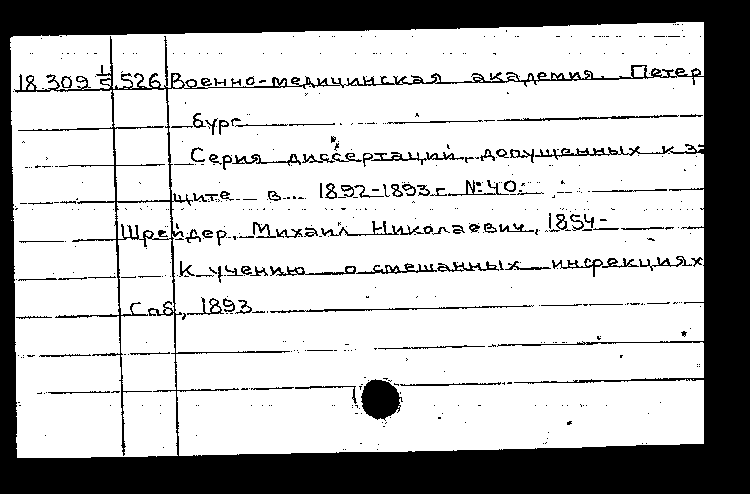 18.309 1/5.526 Военно-медицинская академия. Петер
бург
Серия диссертаций, допущенных к за
щите в... 1892-1893г. №40.
Шрейдер, Михаил Николаевич, 1854-
К учению о смешанных инфекциях
Спб., 1893